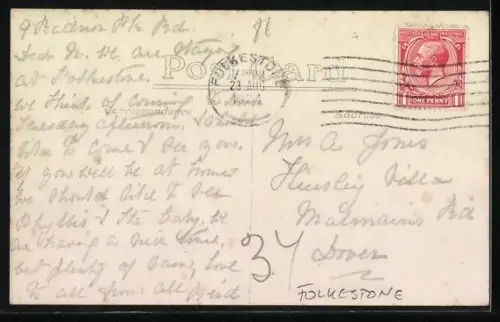 9 Radnor Pk Rd.
Dear N. we are staying
at Folkestone.
we think of coming to Dover
Tuesday afternoon. would
like to come & see you.
if you will be at home
we should like to see
Phyllis & the baby. we
are having a nice time,
but plenty of rain, love
to all from all
Post Card
Correspondence
Address
FOLKESTONE
23 AUG
ONE PENNY
Mrs A Jones
Villa
Rd
Dover
34
FOLKESTONE